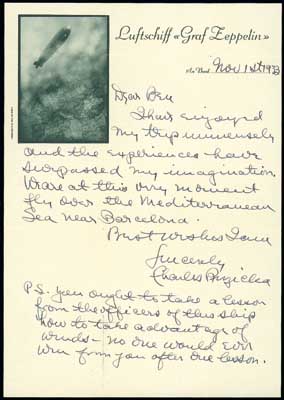 Luftschiff «Graf Zeppelin»
An Bord, Nov 1st 1933
Dear Ben
I have enjoyed
my trip immensely
and the experiences have
surpassed my imagination.
We are at this very moment
fly over the Mediterranean
Sea near Barcelona.
Best Wishes I am
Sincerely
Charles
P.S. you ought to take a lesson
from the officers of this ship
how to take advantage of
winds – no one would ever
win from you after one lesson.